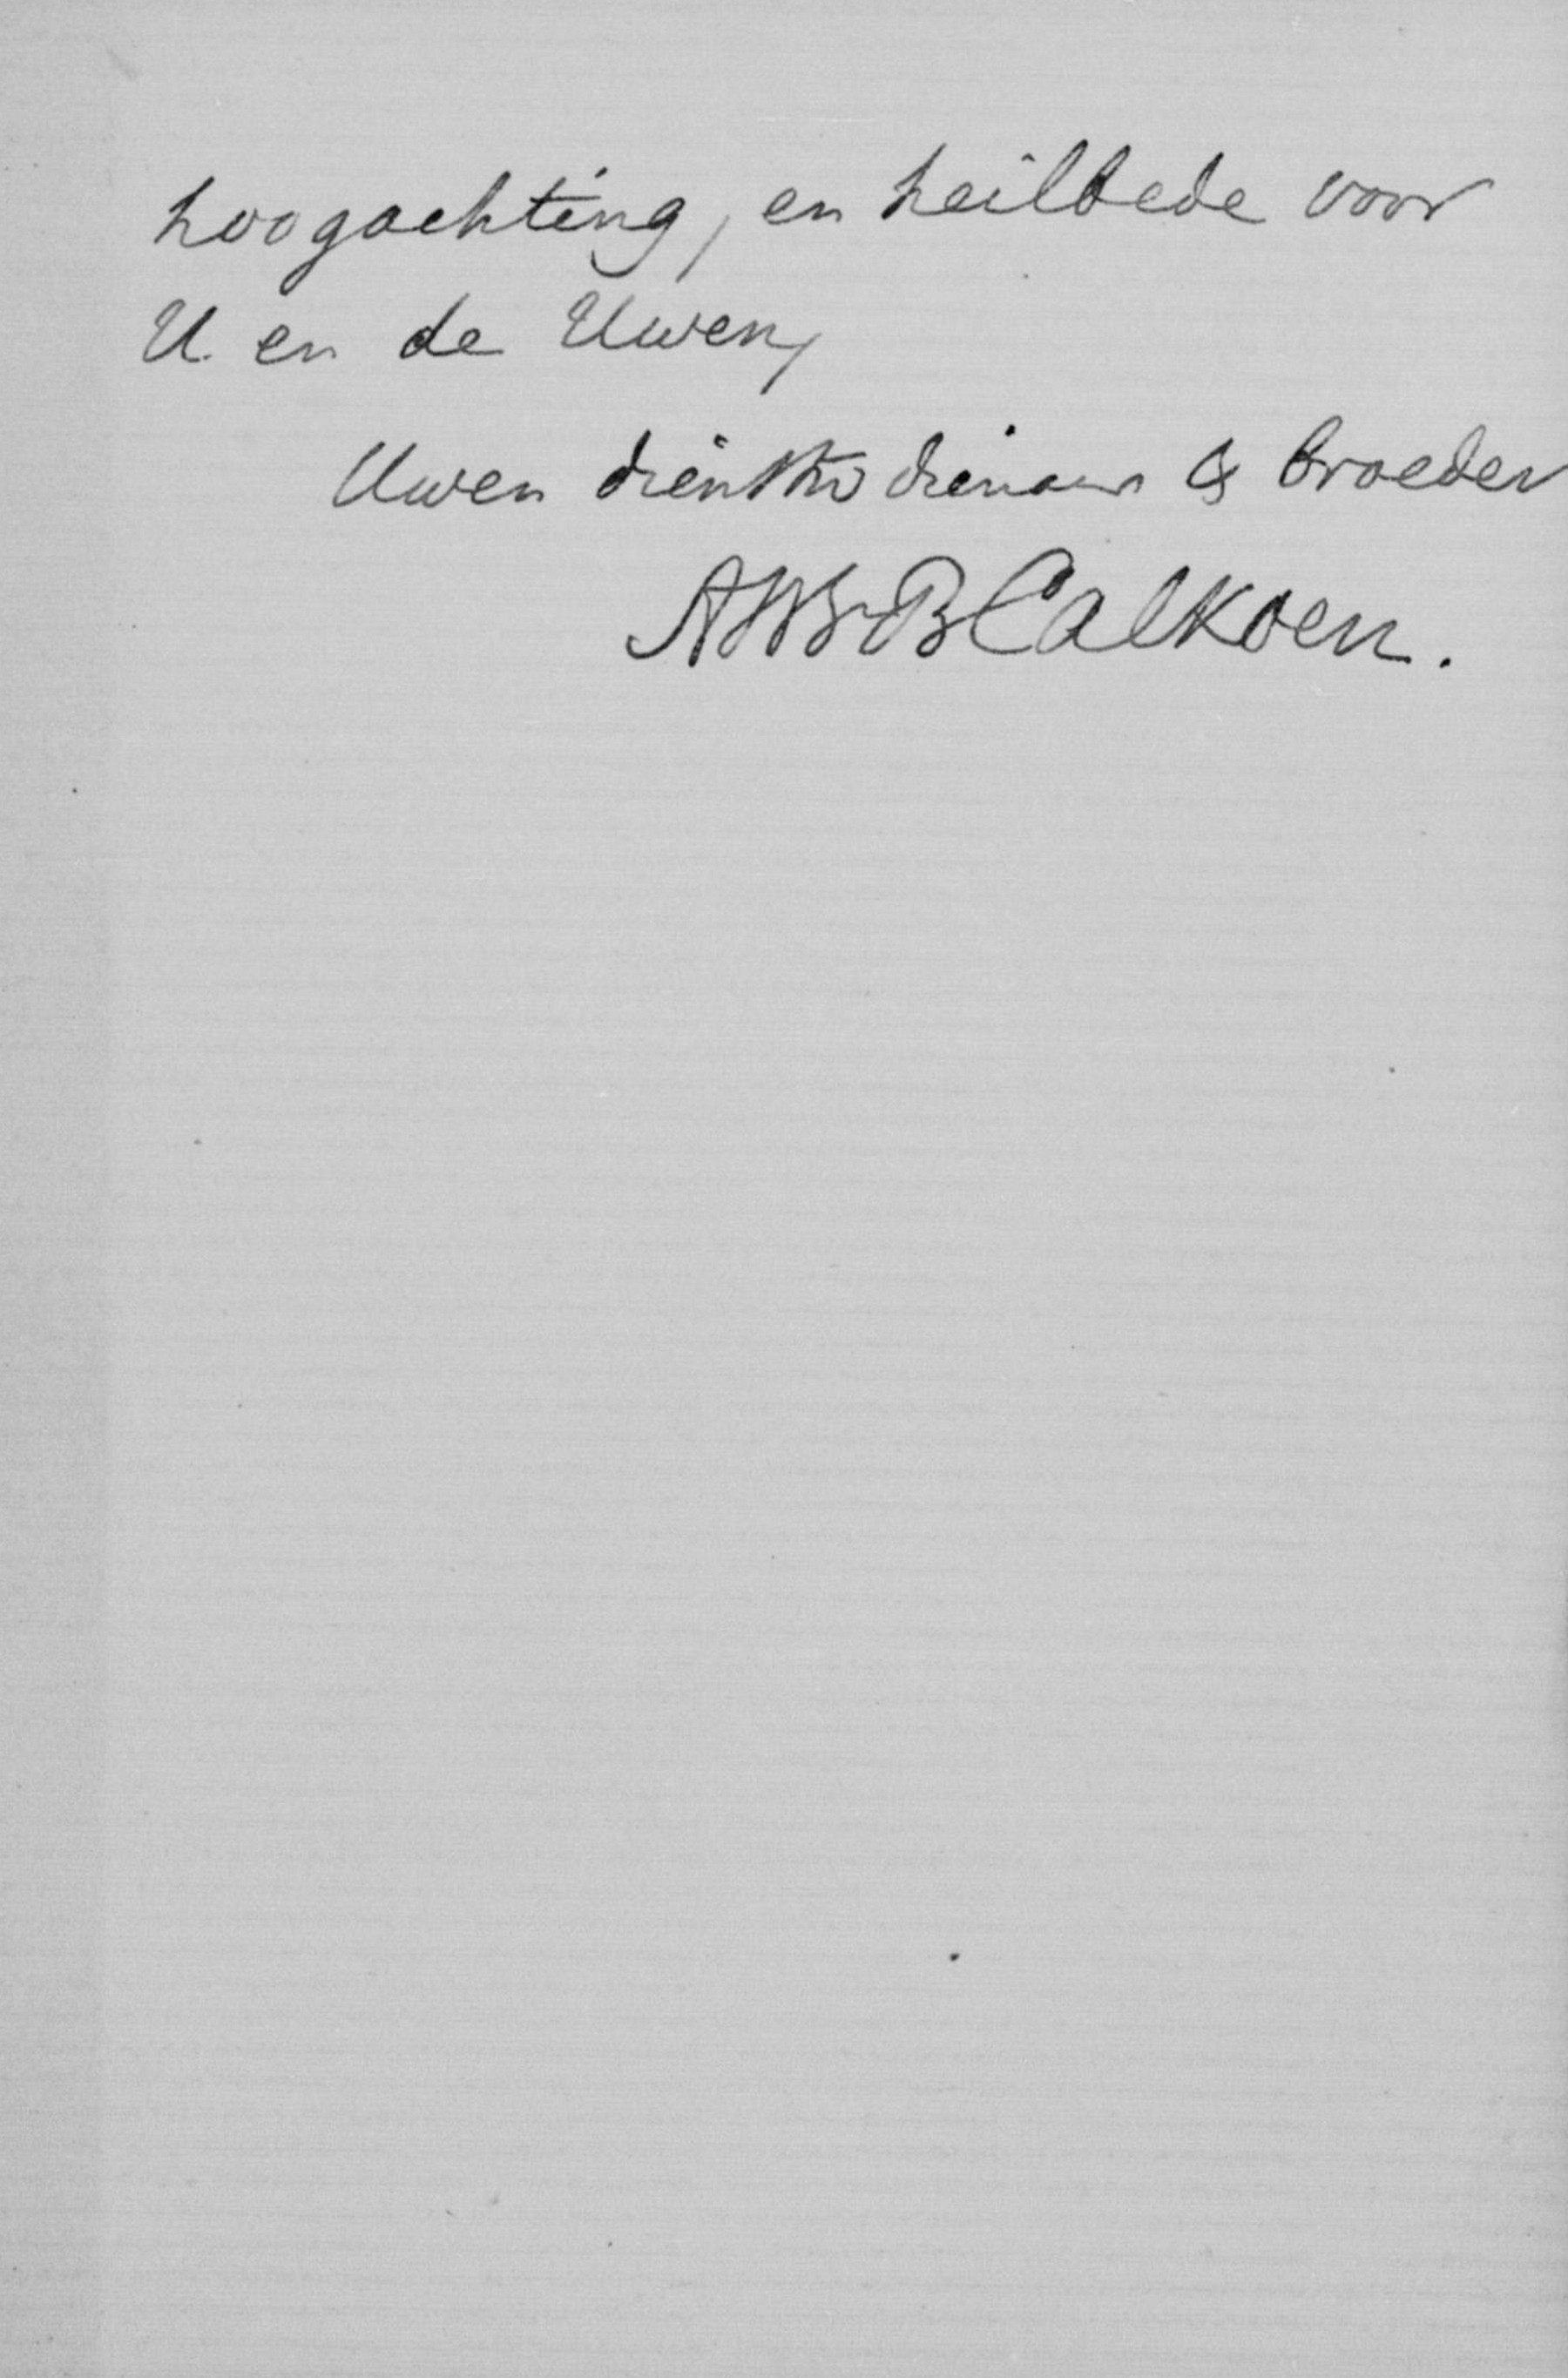 hoogachting, en heilbede voor
U en de Uwen,
Uwen dienstw dienaar & broeder
Calkoen.